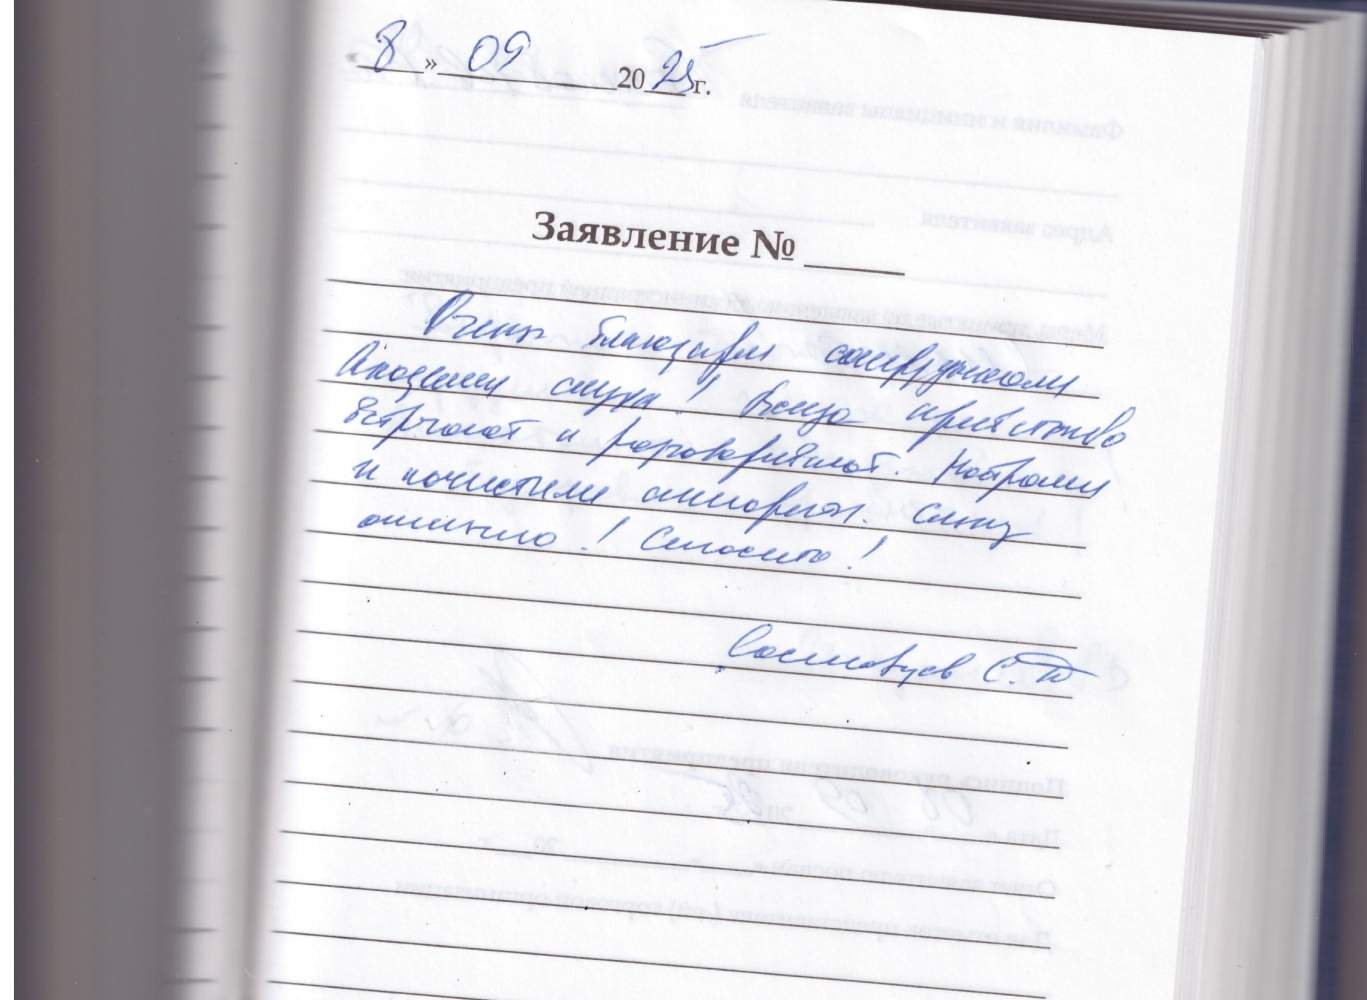 8 » 09 2025 г.
Заявление №
Очень благодарен сотрудникам
Академии слуха! Всегда приветливо
встречают и разговаривают. Настроили
и почистили аппараты. Слышу
отлично! Спасибо!
С. Т